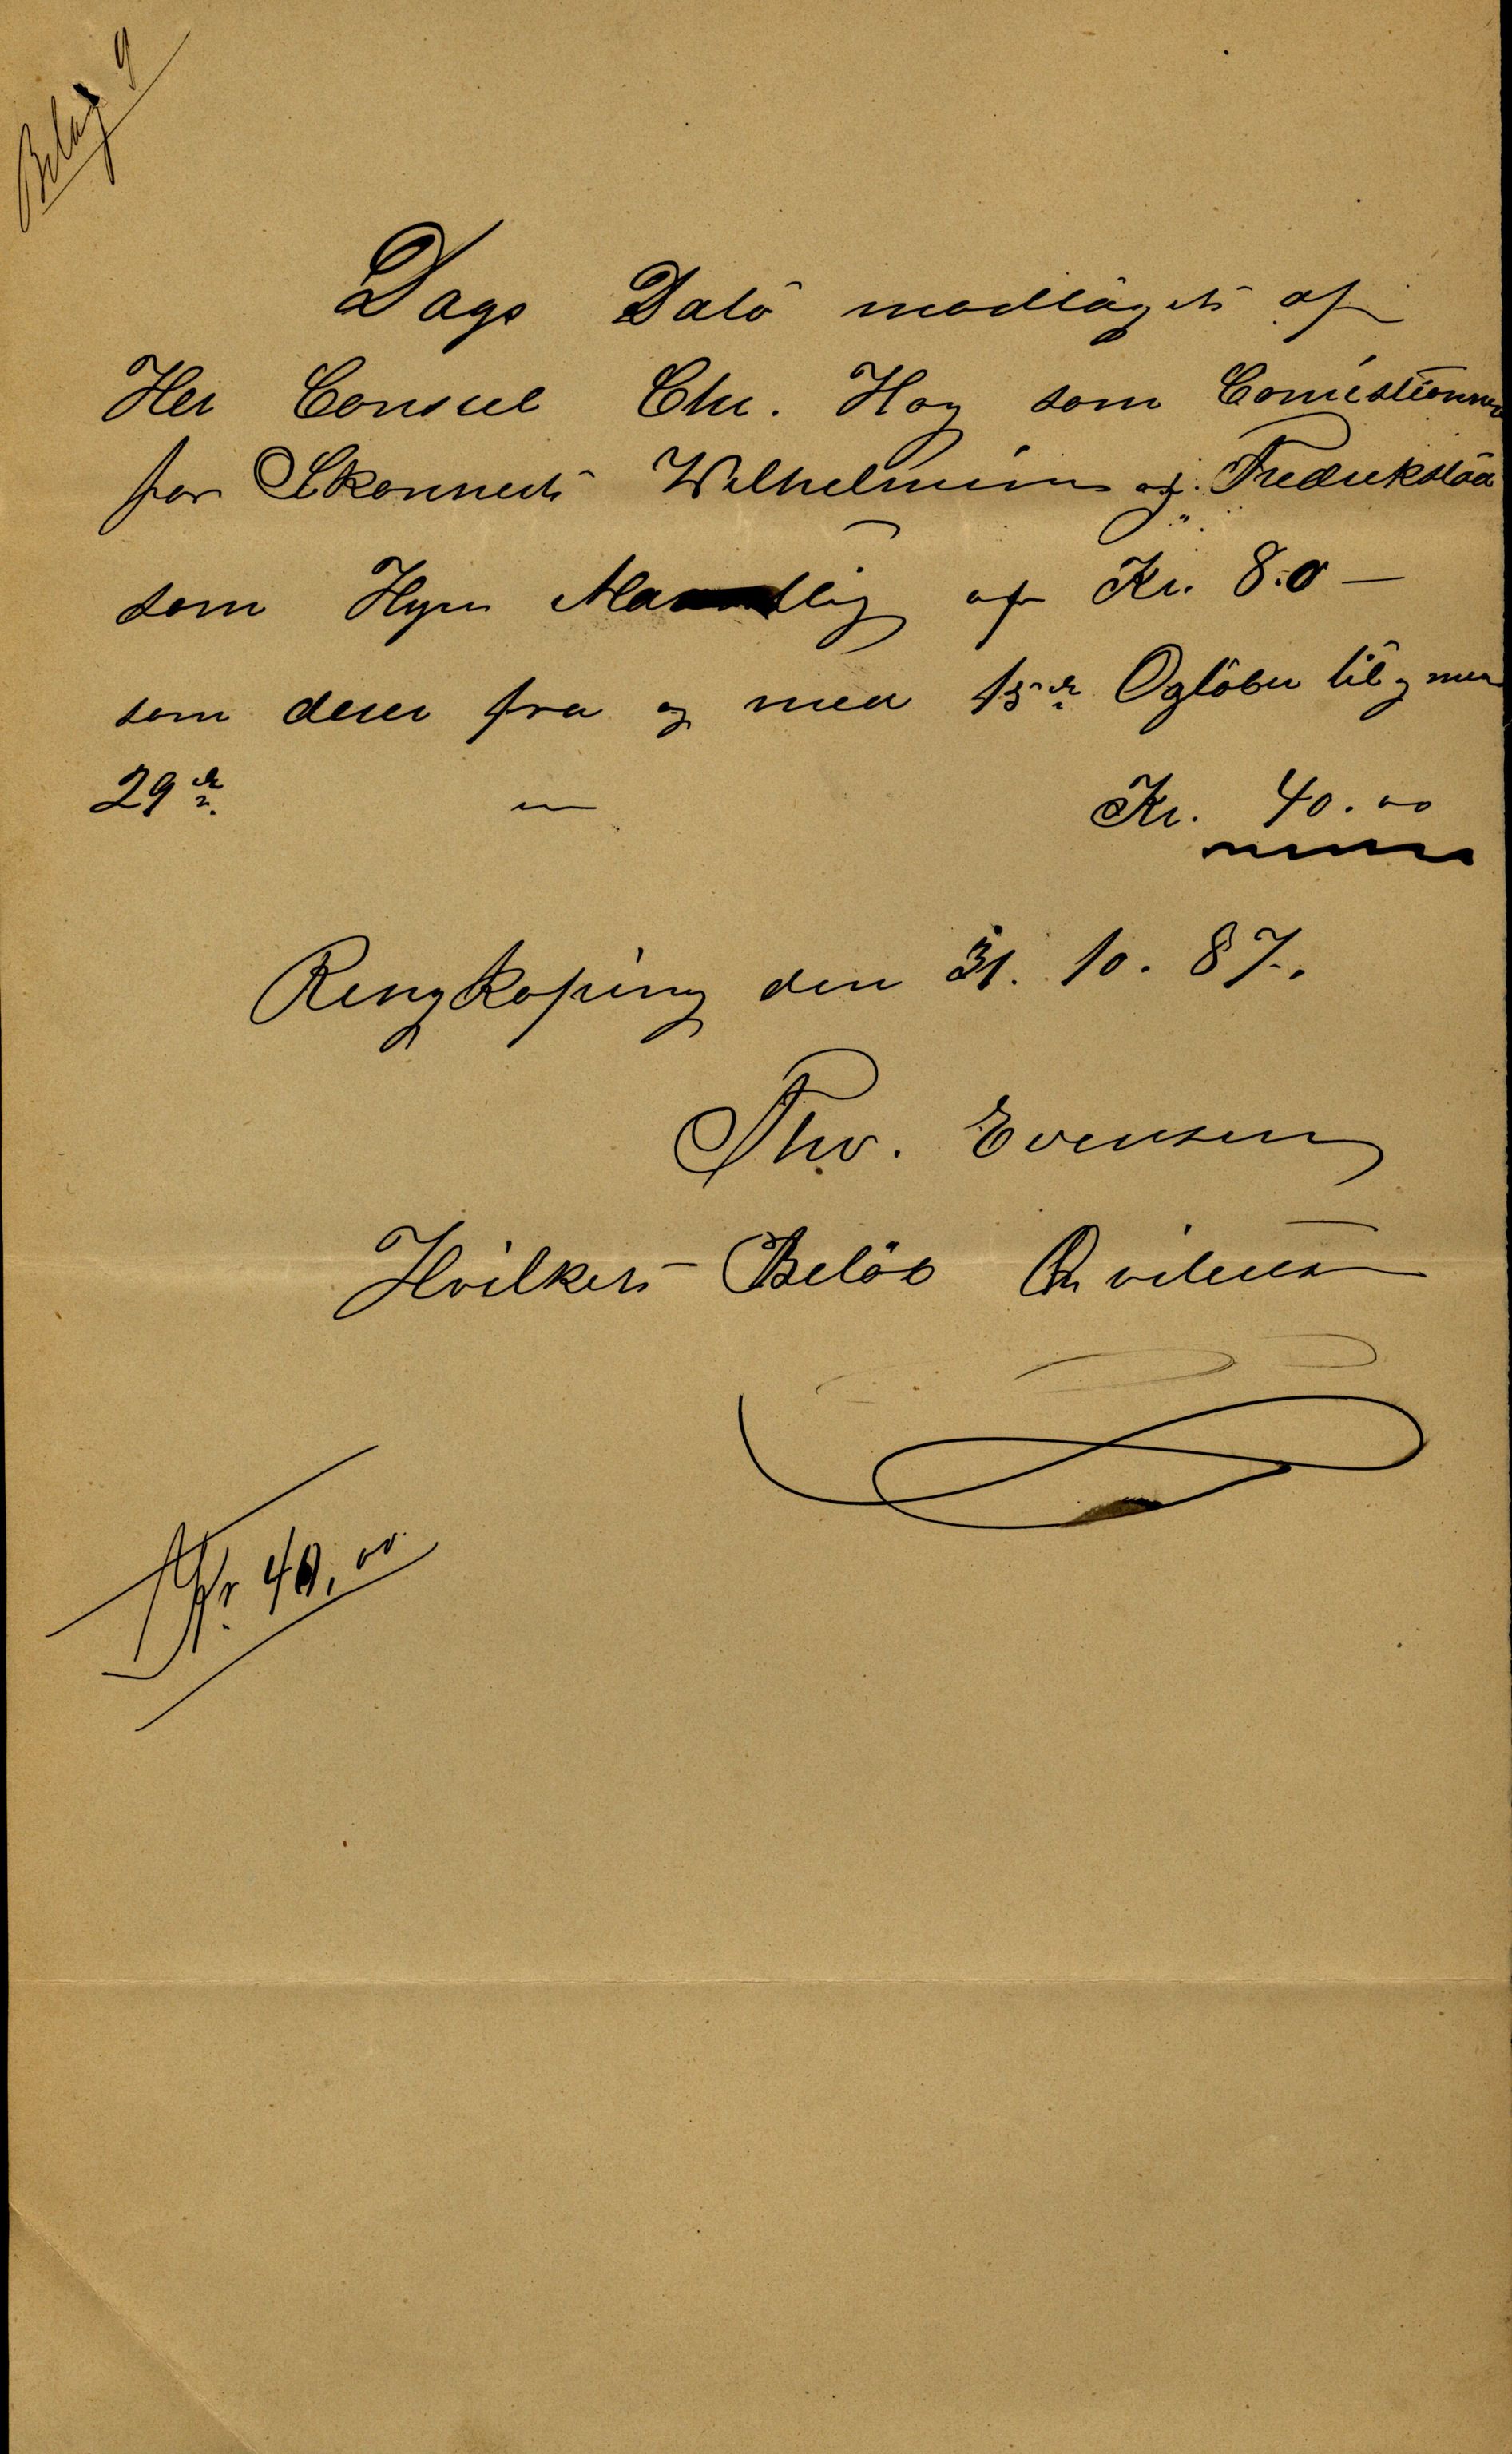 Belag 9
Dags Dato modtaget af
Her Consul Chr. Hoy som Comistionær
for Skonnert Wilhelmine af Fredrikstad
som Hyre Maanedlig af Kr. 80 —
som derer fra og med 15de Ogtober til og med
29de — Kr. 40.00
Ringkøping den 31. 10. 87.
Thv. Evensen
Hvilket Beløb Qviteres
Kr. 40,00